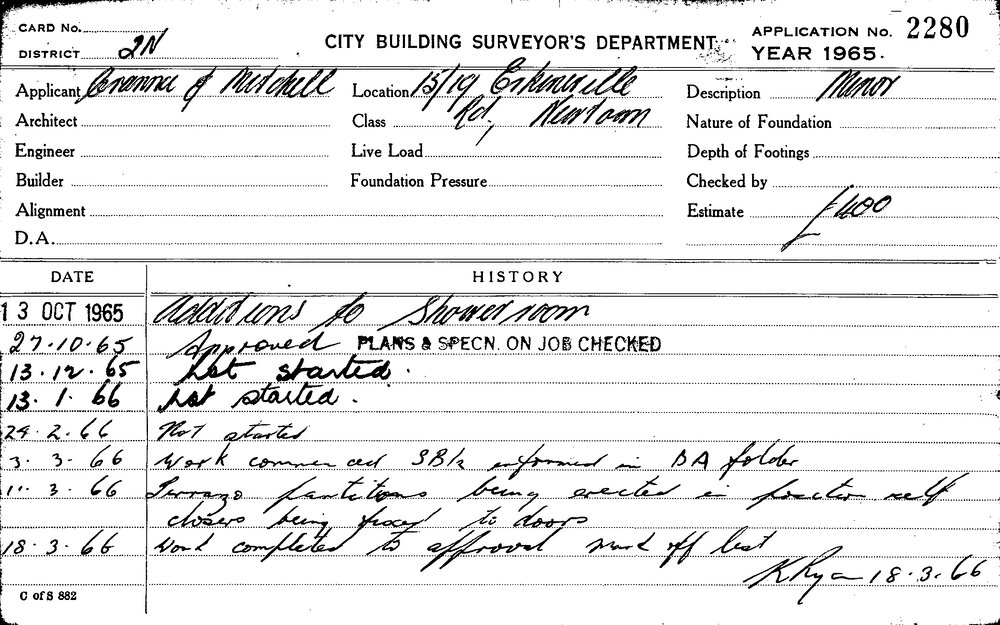 CARD No.
DISTRICT 2N
CITY BUILDING SURVEYOR'S DEPARTMENT
APPLICATION No. 2280
YEAR 1965.
Applicant & Mitchell
Location 15/19 Erskineville
Description Minor
Architect
Class Rd, Newtown
Nature of Foundation
Engineer
Live Load
Depth of Footings
Builder
Foundation Pressure
Checked by
Alignment
Estimate £400
D.A.
DATE
HISTORY
13 OCT 1965 Additions to Showerroom
27.10.65 Approved PLANS & SPECN. ON JOB CHECKED
13.12.65 Not started.
13.1.66 Not started.
24.2.66 Not started
3.3.66 Work commenced informed in BA folder
11.3.66 Terrazo partitions being erected in position self
closers being fixed to doors
18.3.66 Work completed to approval mark off list
K Ryan 18.3.66
C of S 882